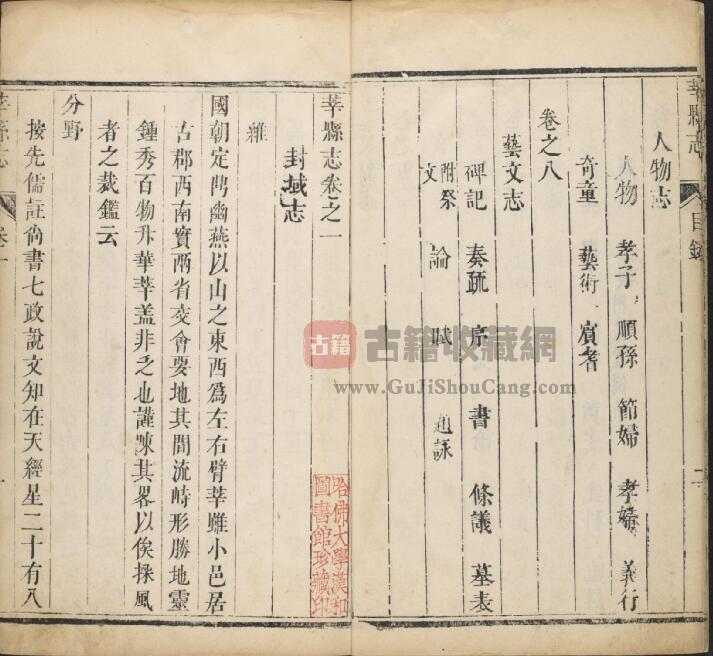 莘縣志
目錄
二
人物志
人物 孝子 順孫 節婦 孝婦 義行
奇童 藝術 賓耆
卷之八
藝文志
碑記 奏疏 序 書 條議 墓表
附祭文 論 賦 題詠
莘縣志卷之一
封域志
國朝定閗幽燕以山之東西爲左右臂莘雖小邑居
古郡西南實兩省交會要地其間流峙形勝地靈
鍾秀百物升華莘盖非乏也謹陳其畧以俟採風
者之裁鑑云
分野
按先儒註尚書七政說文知在天經星二十有八
莘縣志
卷一
哈佛大學漢和圖書館珍藏印
古籍
古籍收藏網
www.GuJiShouCang.com